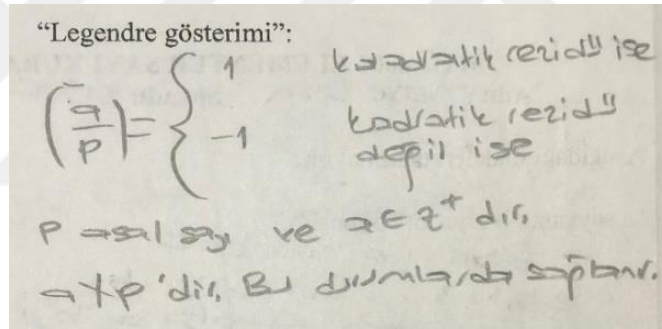 “Legendre gösterimi”:
(a/p) = { 1 kuadratik rezidü ise
-1 kadratik rezidü değil ise
p asal sayı ve a ∈ Z⁺ dır.
a ∤ p'dir. Bu durumlarda sağlanır.